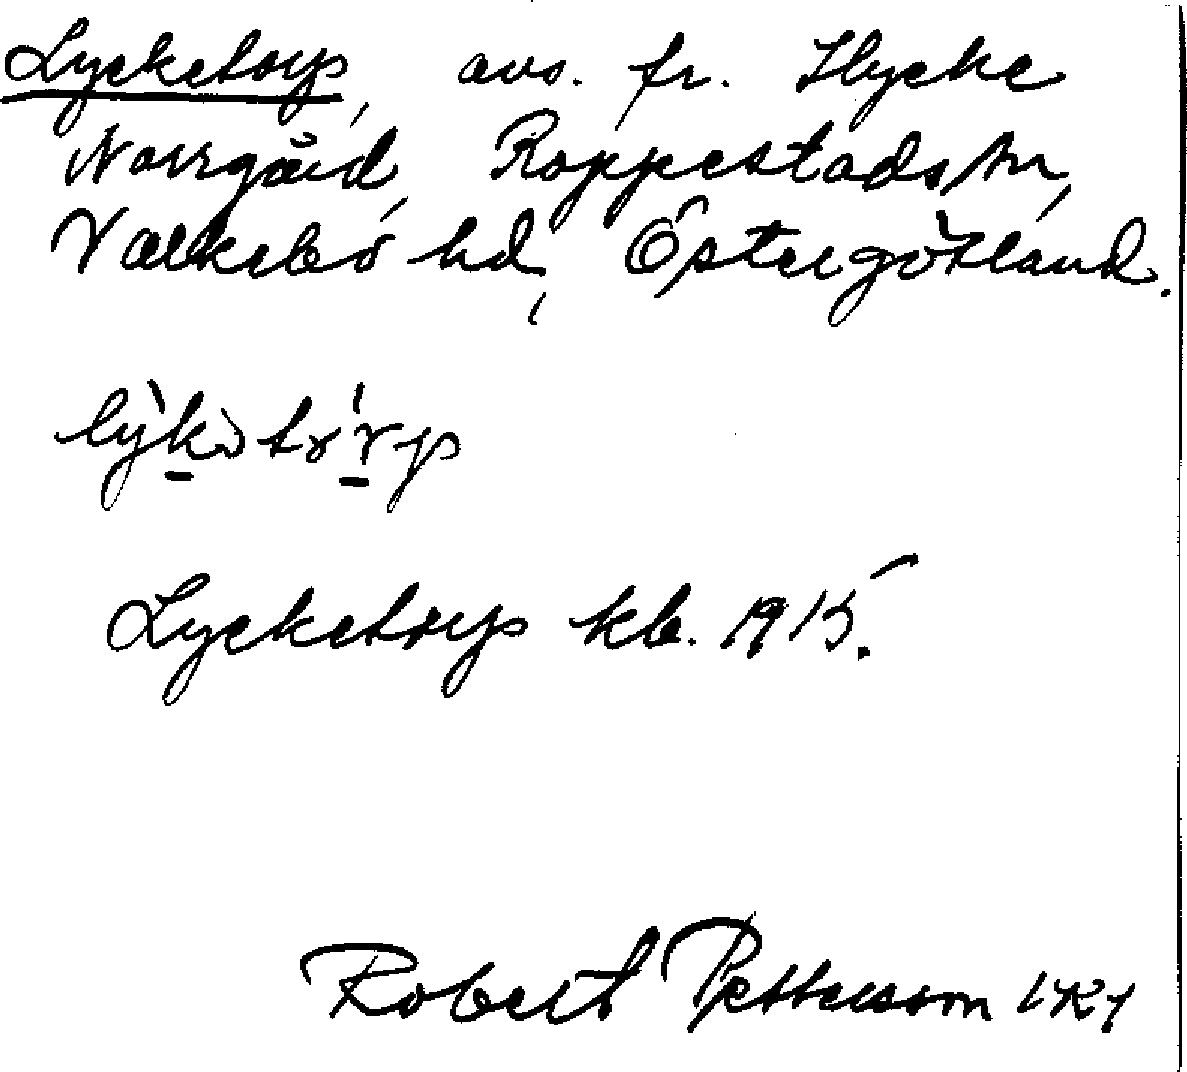 Lycketorp, avs. fr. Hycke
Norrgård, Rappestads sn,
Valkebo hd, Östergötland.
Lycketorp kb. 1915.
Robert Pettersson